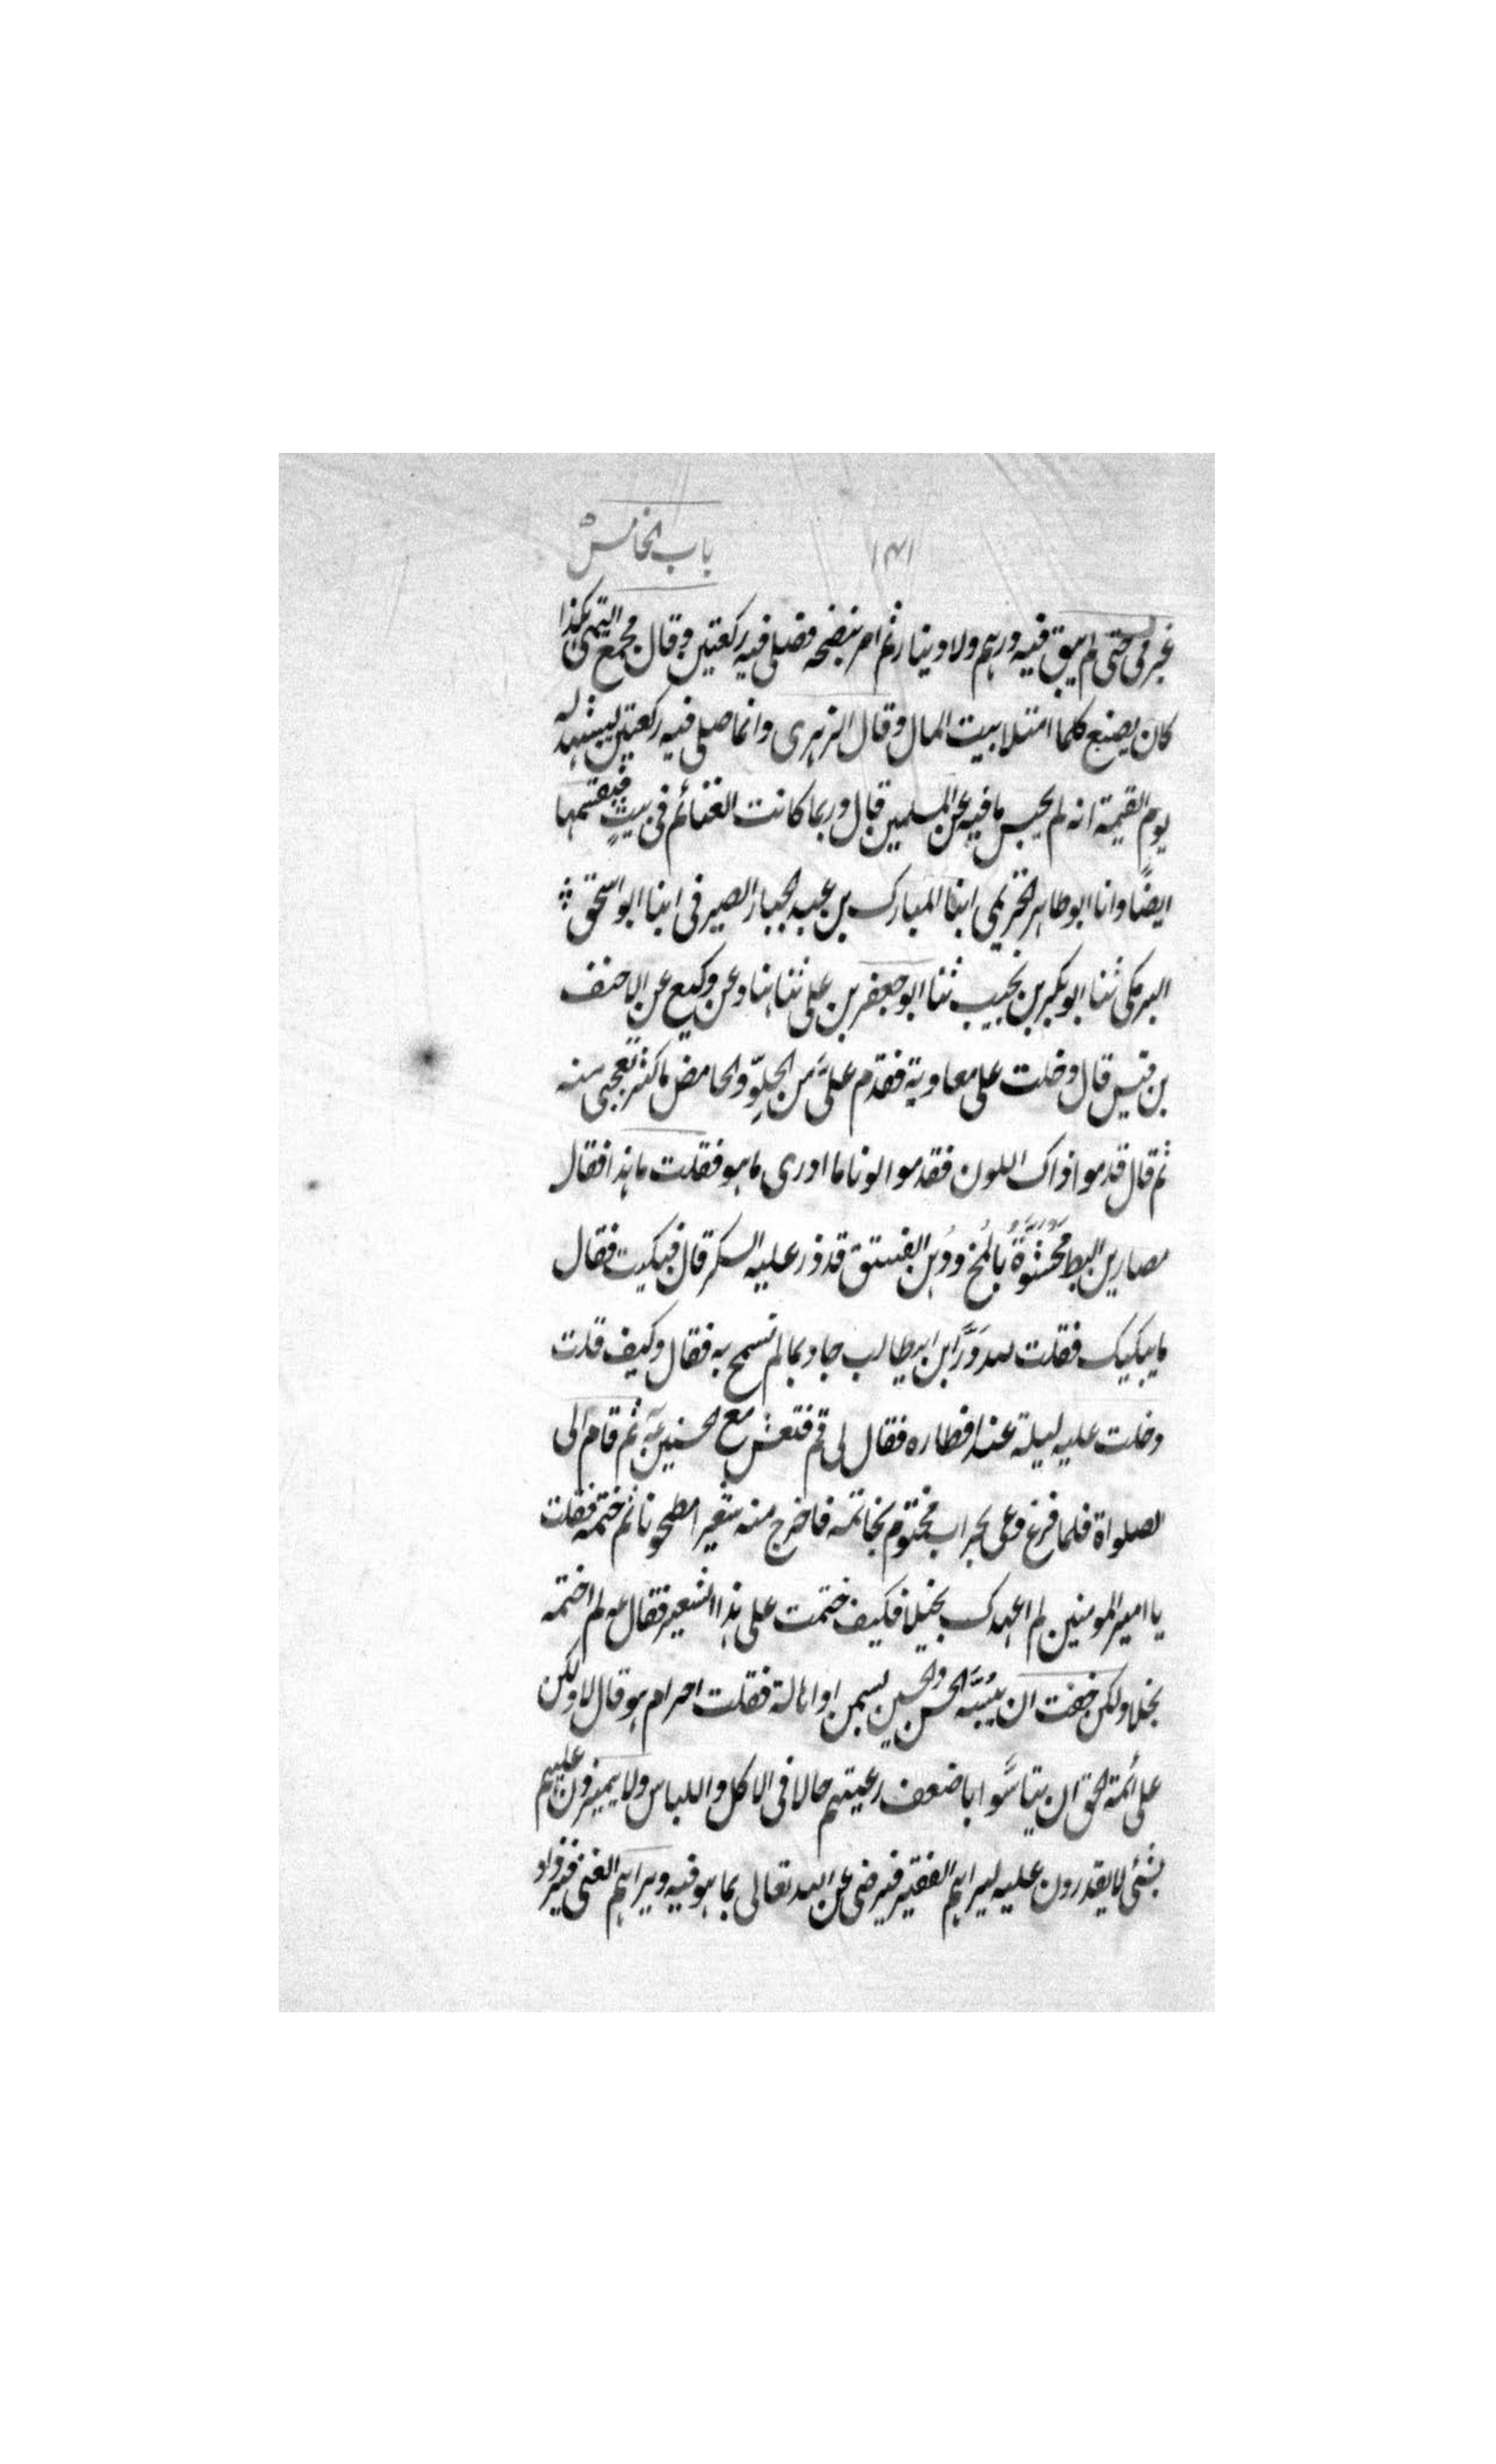 ١٣١ باب الخامس
غيري حتى لم يبق فيه درهم ولا دينار ثم امر بنضحه فصلى فيه ركعتين وقال مجمع التيمي هكذا
كان يصنع كلما امتلا بيت المال وقال الزهري وانما صلى فيه ركعتين ليشهد له
يوم القيمة انه لم يحبس ما فيه عن المسلمين قال وربما كانت الغنائم في بيتٍ فيقسمها
ايضًا وانا ابو طاهر الخزيمي ابنا المبارك بن عبد الجبار الصيرفي ابنا ابو اسحق
البرمكي ثنا ابو بكر بن نجيب ثنا ابو جعفر بن علي ثنا هناد عن وكيع عن الاحنف
بن قيس قال دخلت على معاوية فقدم عليَّ من الحِلوّ والحامض ما كثر تعجبي منه
ثم قال قدموا ذاك اللون فقدموا لونا ما ادري ما هو فقلت ما هذا فقال
مصارين البط محُشوّةُ بالُمخ ودُهن الفستق قد ذر عليه السكر قال فبكيت فقال
ما يبكيك فقلت لله دَرَّ ابن ابي طالب جاد بما لم تسمح به فقال وكيف قلت
دخلت عليه ليلة عند افطاره فقال لي قم فتعش مع الحسنين عَہ ثم قام الى
لصلواة فلما فرغ دعى بجراب مختوم بخاتمه فاخرج منه شعيرا مطحونا ثم ختمه فقلت
يا امير المومنين لم اعهدك بخيلا فكيف ختمت على هذا الشعير فقال ع لم اختمه
بخلا ولكن خفت ان يبُسَّه الحسن والحسين بسمن او اهالة فقلت احرام هو قال لا ولكن
على ائمة الحق ان يتاسَّوا باضعف رعيتهم حالا في الاكل واللباس ولا يتميزون عليهم
بشئ لا يقدرون عليه ليراهم الفقير فيرضى عن الله تعالى بما هو فيه ويراهم الغني فيزداد